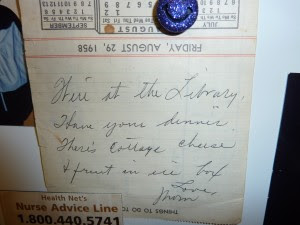 SEPTEMBER
JULY
FRIDAY, AUGUST 29, 1958
We're at the Library.
Have your dinner.
There's cottage cheese
& fruit in ice box
Love,
Mom
THINGS TO DO TO
Health Net's
Nurse Advice Line
1.800.440.5741